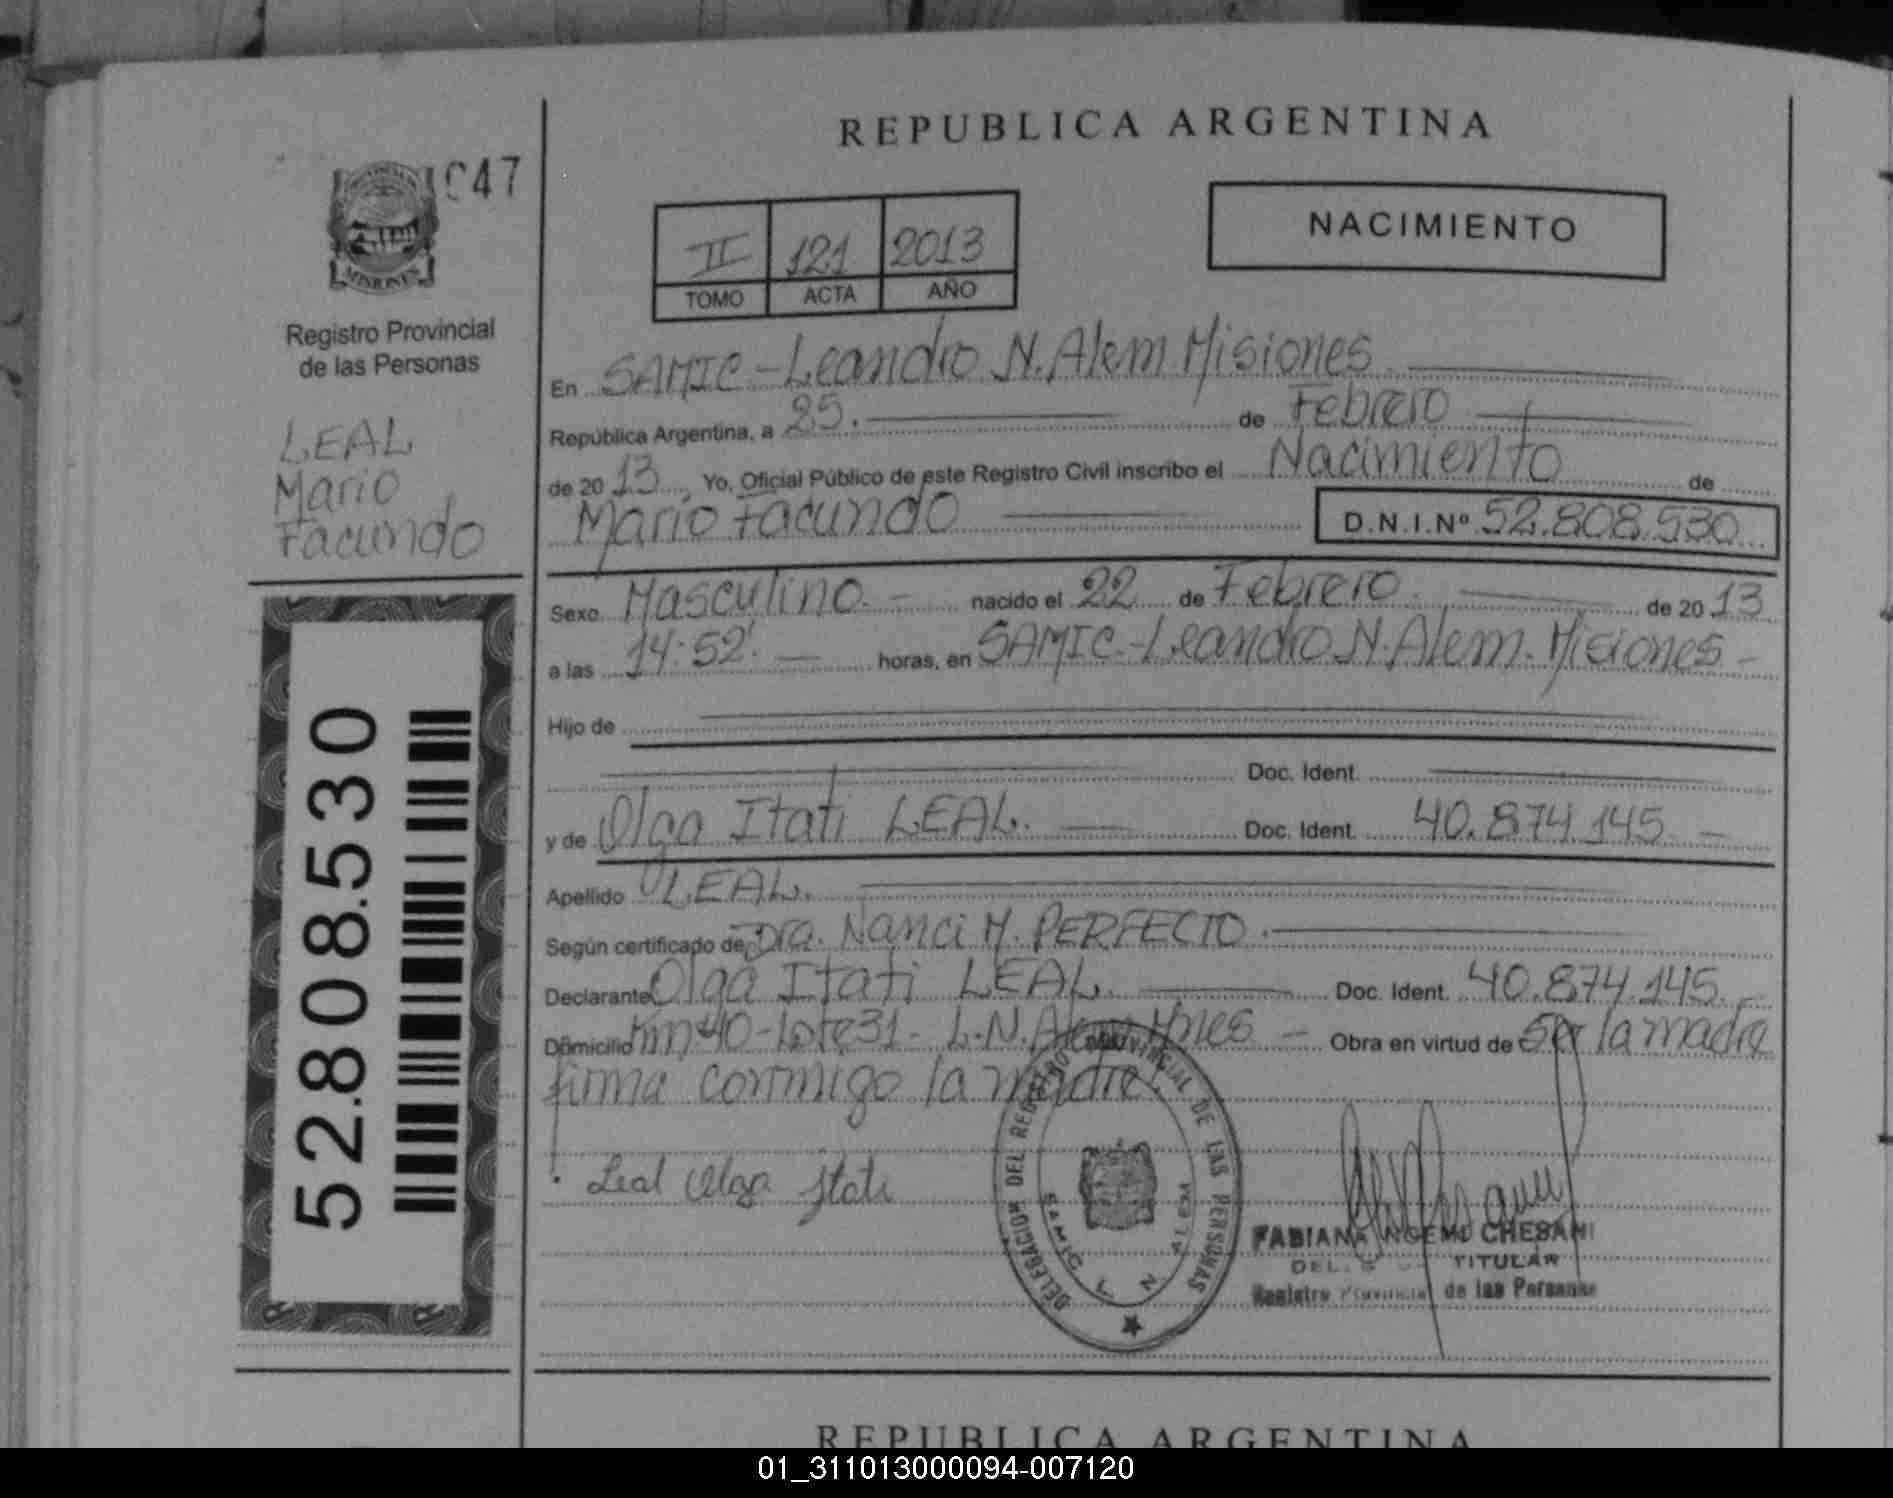 REPUBLICA ARGENTINA
047
MISIONES
Registro Provincial
de las Personas
LEAL
Mario
Facundo
52.808.530
II 121 2013
TOMO ACTA AÑO
NACIMIENTO
En SAMIC - Leandro N. Alem Misiones
República Argentina, a 25. de Febrero
de 2013, Yo, Oficial Público de este Registro Civil inscribo el Nacimiento de
Mario Facundo D.N.I.Nº 52.808.530
Sexo Masculino. - nacido el 22 de Febrero. de 2013
a las 14:52'. horas, en SAMIC - Leandro N. Alem. Misiones -
Hijo de
Doc. Ident.
y de Olga Itati LEAL. Doc. Ident. 40.874.145 -
Apellido LEAL.
Según certificado de Dra. Nanci M. PERFECTO.
Declarante Olga Itati LEAL. Doc. Ident. 40.874.145. -
Domicilio Km 40 - Lote 31 - L.N. Alem Mnes - Obra en virtud de Ser la madre
firma conmigo la madre.
Leal Olga Itati
DELEGACION DEL REGISTRO PROVINCIAL DE LAS PERSONAS
SAMIC L N ALEM
FABIANA NOEMI CHESANI
TITULAR
Registro Provincial de las Personas
REPUBLICA ARGENTINA
01_311013000094-007120